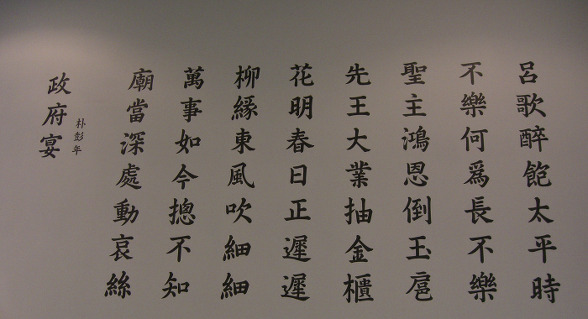 政府宴
朴彭年
廟當深處動哀絲
萬事如今摠不知
柳緣東風吹細細
花明春日正遲遲
先王大業抽金櫃
聖主鴻恩倒玉扈
不樂何爲長不樂
呂歌醉飽太平時